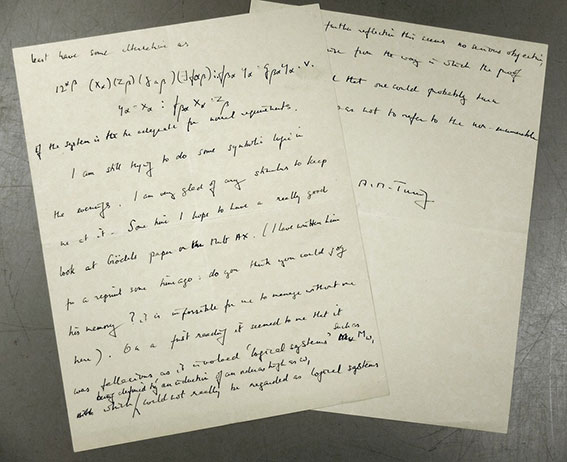 least have some alternative as
12αβ (x_α)(z_β)(g_αβ)(∃f_αβ): f_βα y_α = g_βα y_α . v.
y_α = x_α : f_βα x_α = z_β
if the system is to be adequate for normal requirements.
I am still trying to do some symbolic logic in
the evenings. I am very glad of any stimulus to keep
me at it. Some time I hope to have a really good
look at Gödel's paper on the Mult Ax. (I have written him
for a reprint some time ago. do you think you could jog
his memory? It is impossible for me to manage without one
here). On a first reading it seemed to me that it
was fallacious as it involved 'logical systems' such as M_ω₁
being defined by an induction of an order as high as ω₁
which could not really be regarded as logical systems
further reflection this seems no serious objection,
from the way in which the proof
that one could probably
as not to refer to the non-enumerable
A. M. Turing